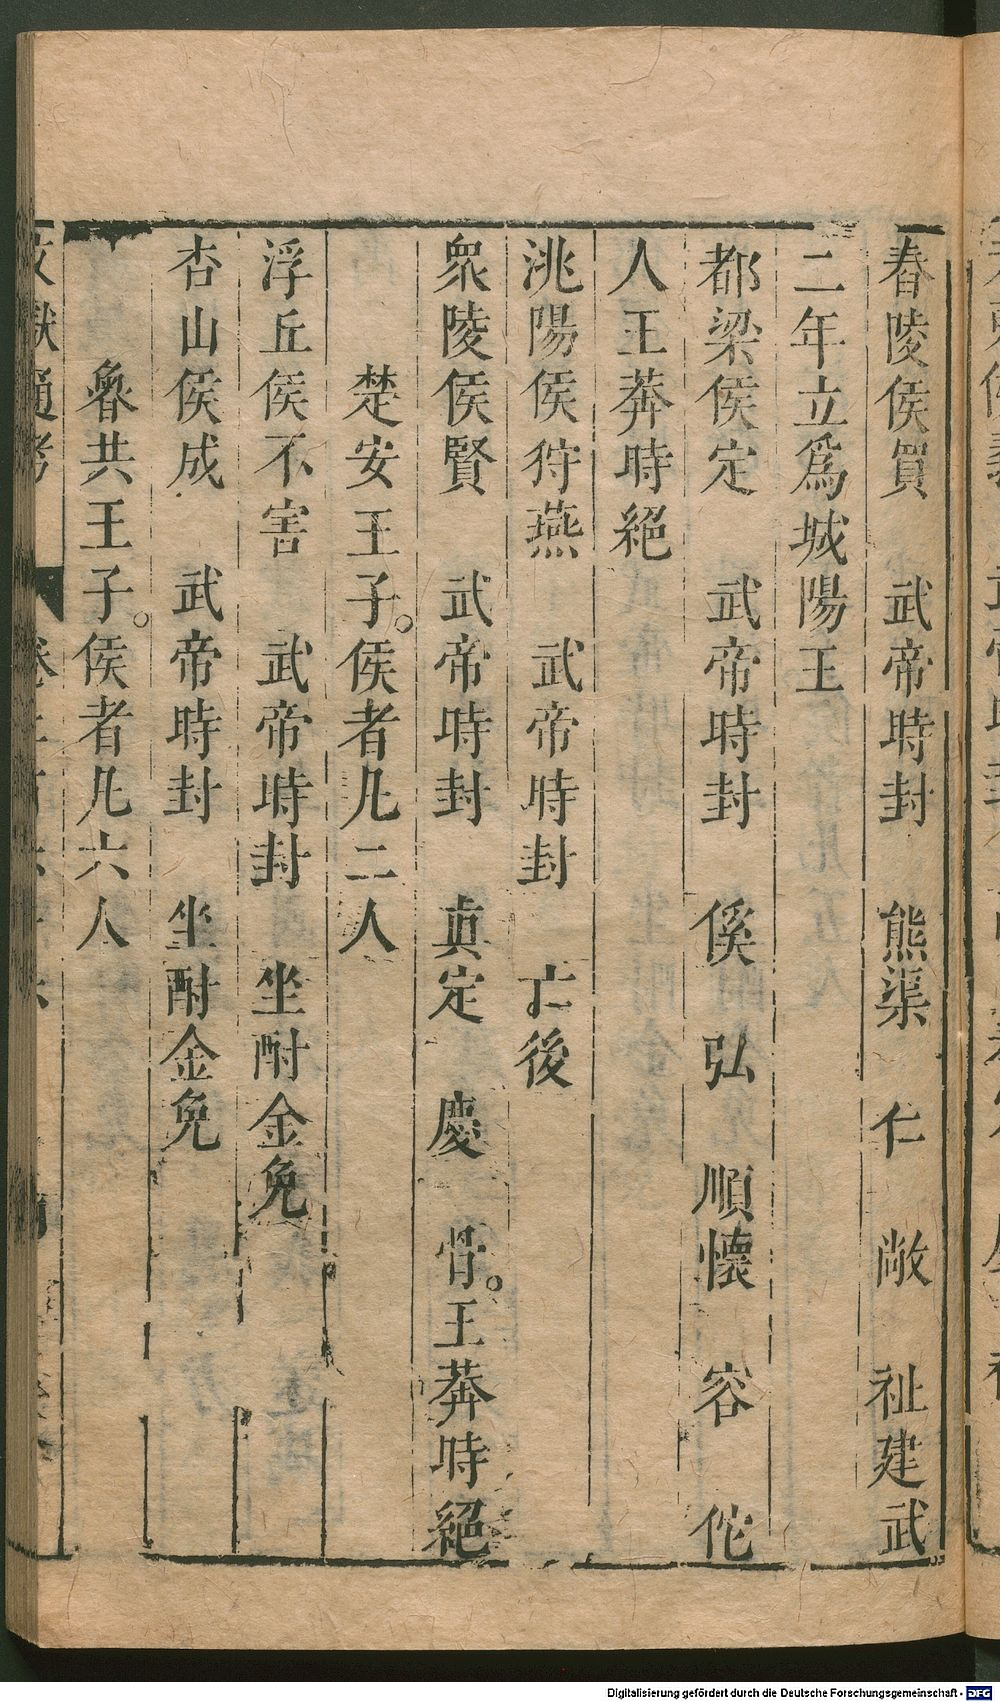 舂陵侯買　武帝時封　熊渠　仁　敞　祉建武
二年立爲城陽王
都梁侯定　武帝時封　傒　弘　順懷　容　佗
人王莽時絕
洮陽侯狩燕　武帝時封　亡後
衆陵侯賢　武帝時封　眞定　慶　骨。王莽時絕
楚安王子。侯者凡二人
浮丘侯不害　武帝時封　坐酎金免
杏山侯成　武帝時封　坐酎金免
魯共王子。侯者凡六人
文獻通考
Digitalisierung gefördert durch die Deutsche Forschungsgemeinschaft - DFG